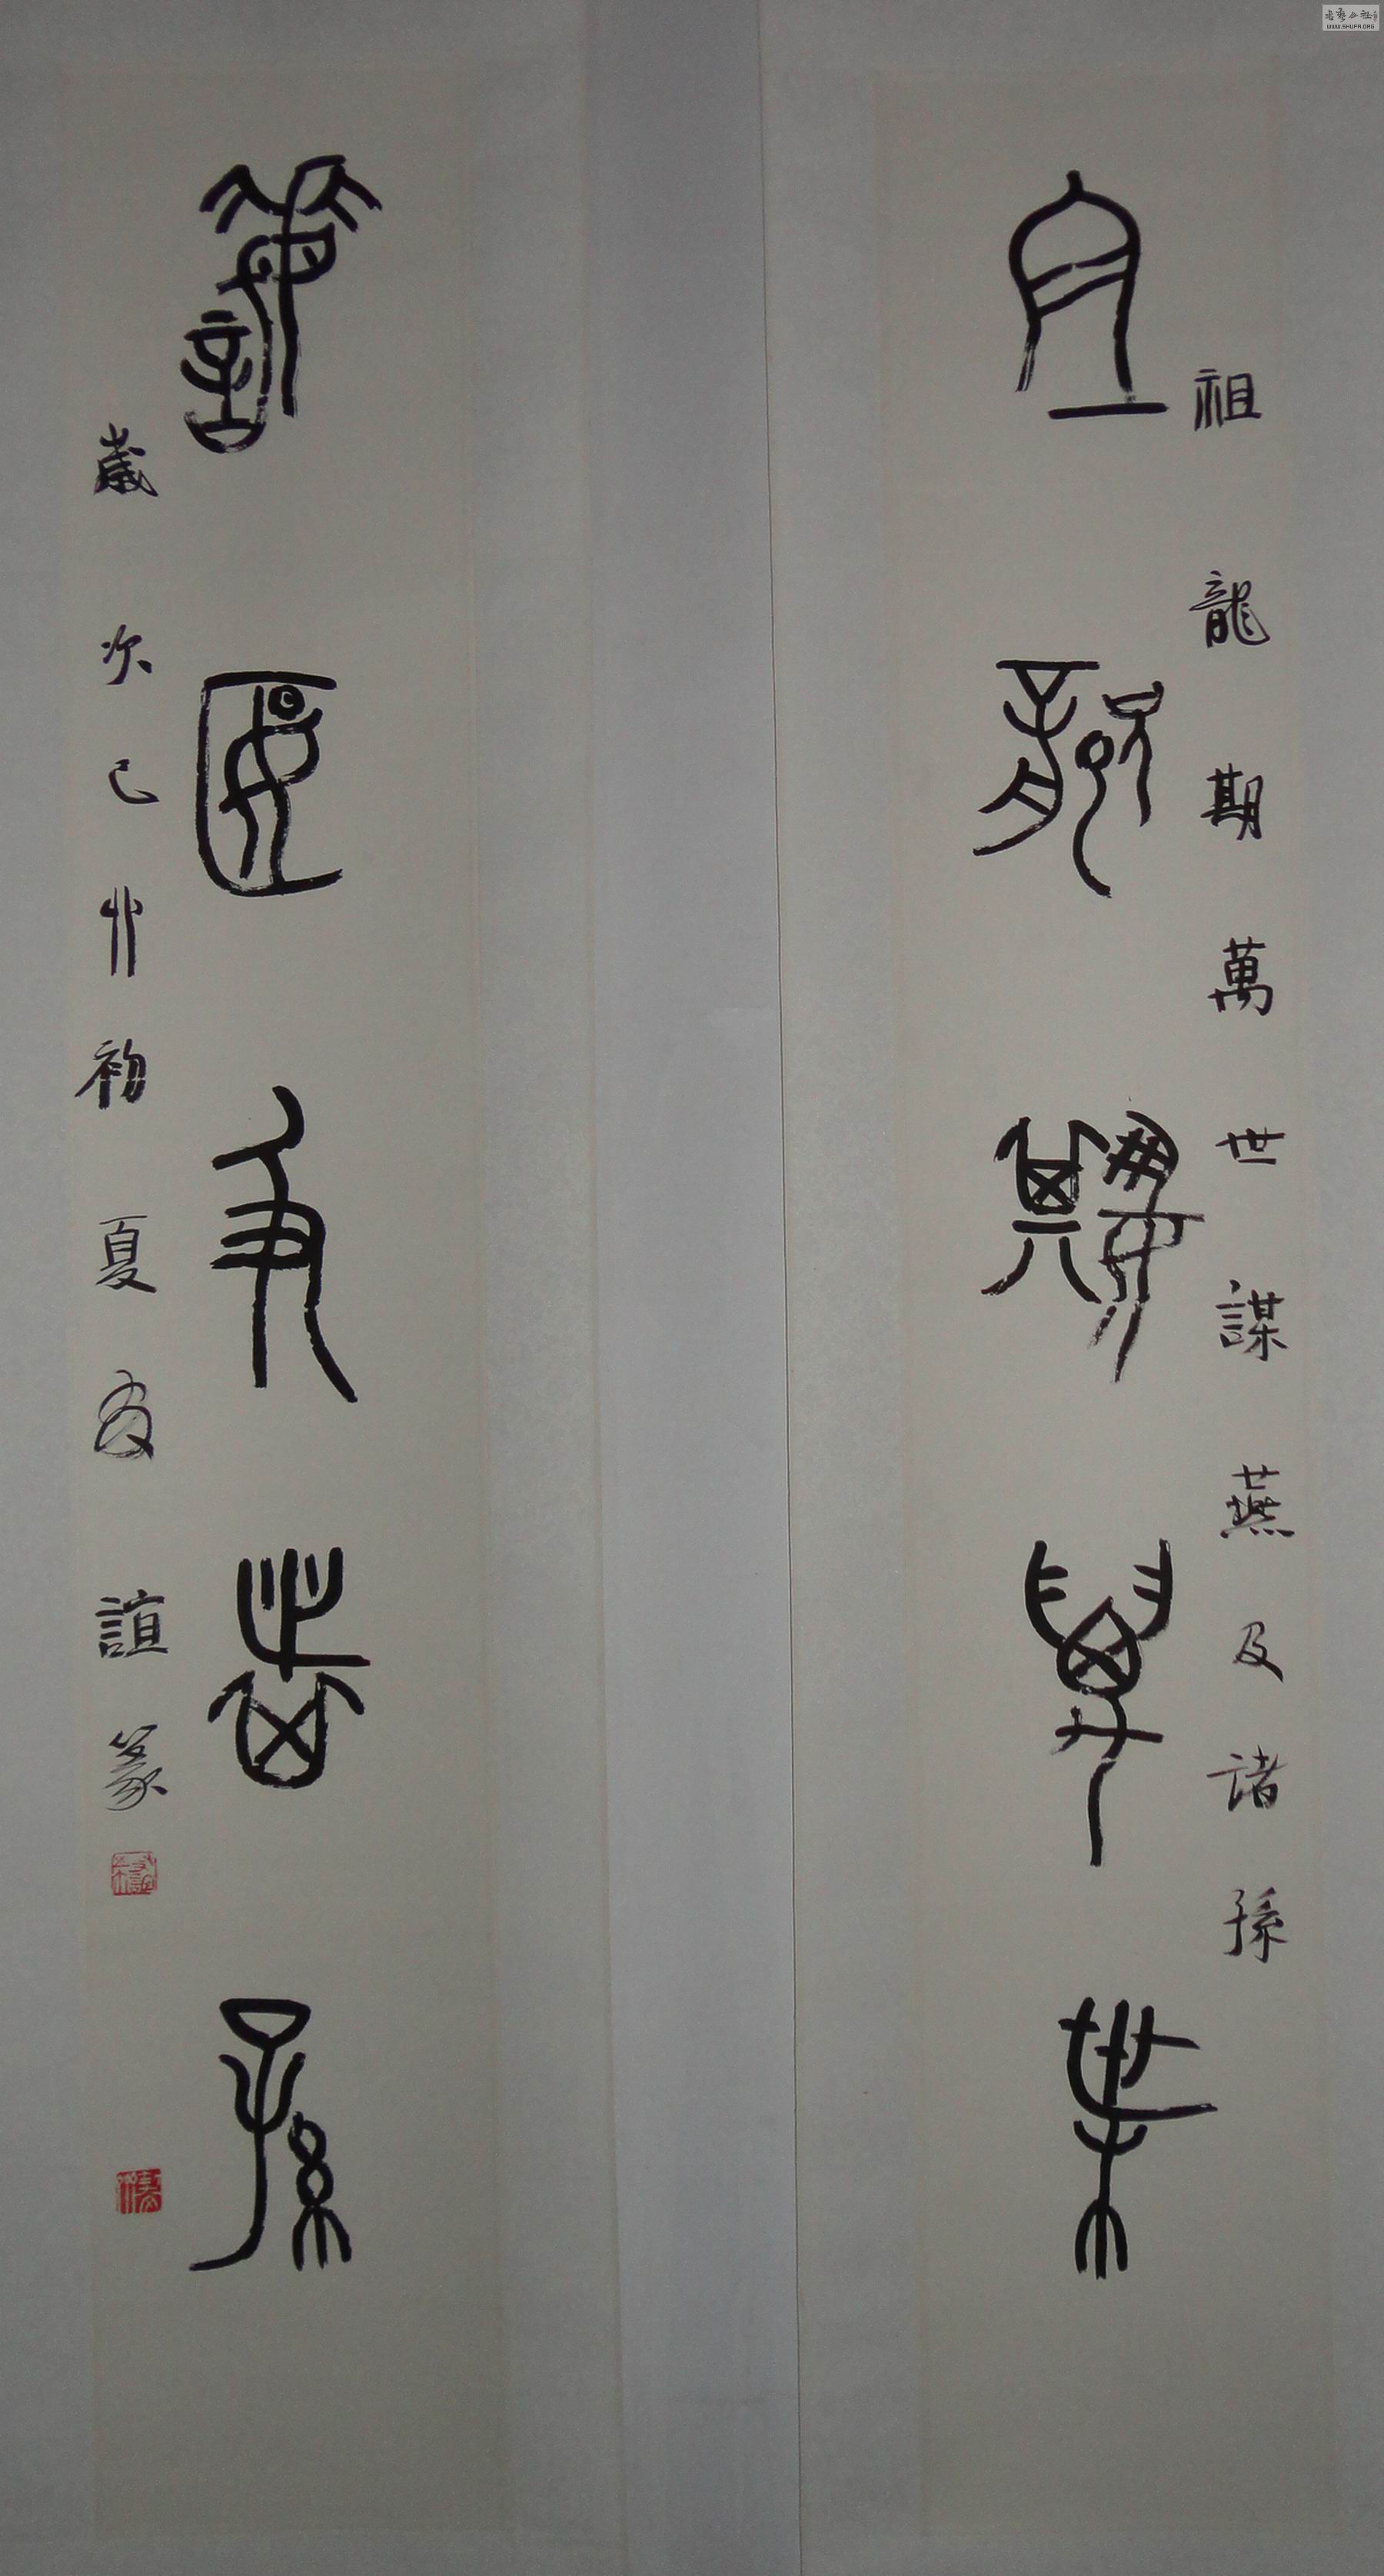 祖龍期萬世
祖龍期萬世謀燕及諸孫
謀燕及諸孫
歲次己丱初夏友誼篆
WWW.SHUFA.ORG